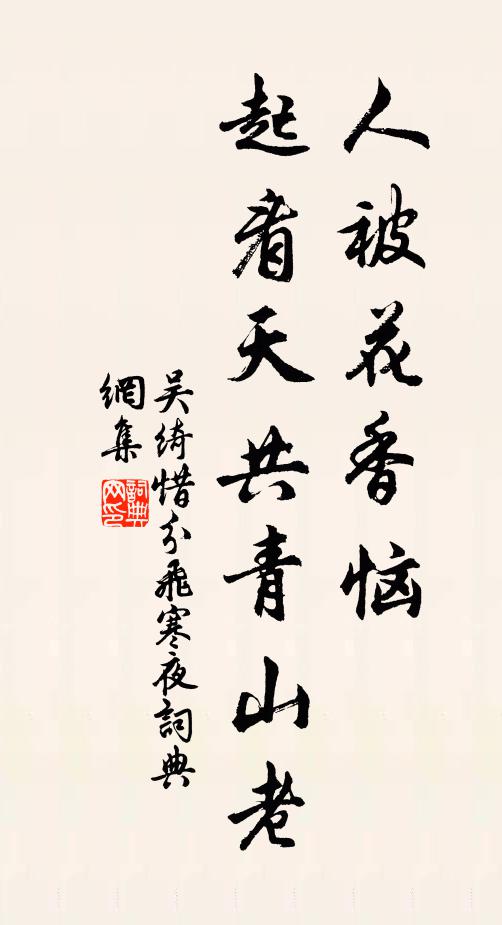 人被花香恼
起看天共青山老
吴绮惜分飞寒夜詞典
網集
詞典
网印